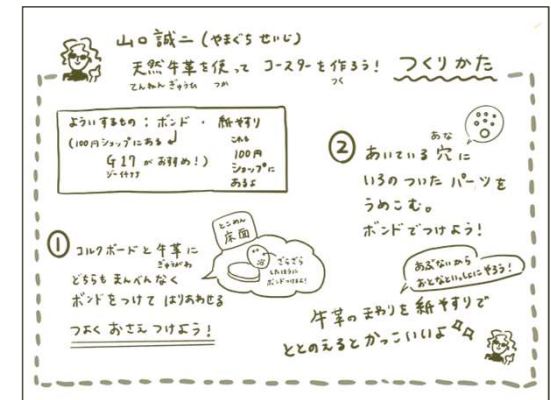 山口誠二(やまぐち せいじ)
天然牛革を使って コースターを作ろう!
てんねん ぎゅうひ つか つく
つくりかた
よういするもの:ボンド・紙ヤスリ
(100円ショップにある
G17がおすすめ!)
ジーイチナナ
これも
100円
ショップに
あるよ
①
コルクボードと牛革に
ぎゅうがわ
どちらもまんべんなく
ボンドをつけて はりあわせる
つよく おさえつけよう!
とこめん
床面
ざらざら
したほうに
ボンドつけるよ!
②
あな
あいている穴に
いろのついた パーツを
うめこむ。
ボンドでつけよう!
あぶないから
おとなといっしょにやろう!
牛革のまわりを紙ヤスリで
ととのえるとかっこいいよ